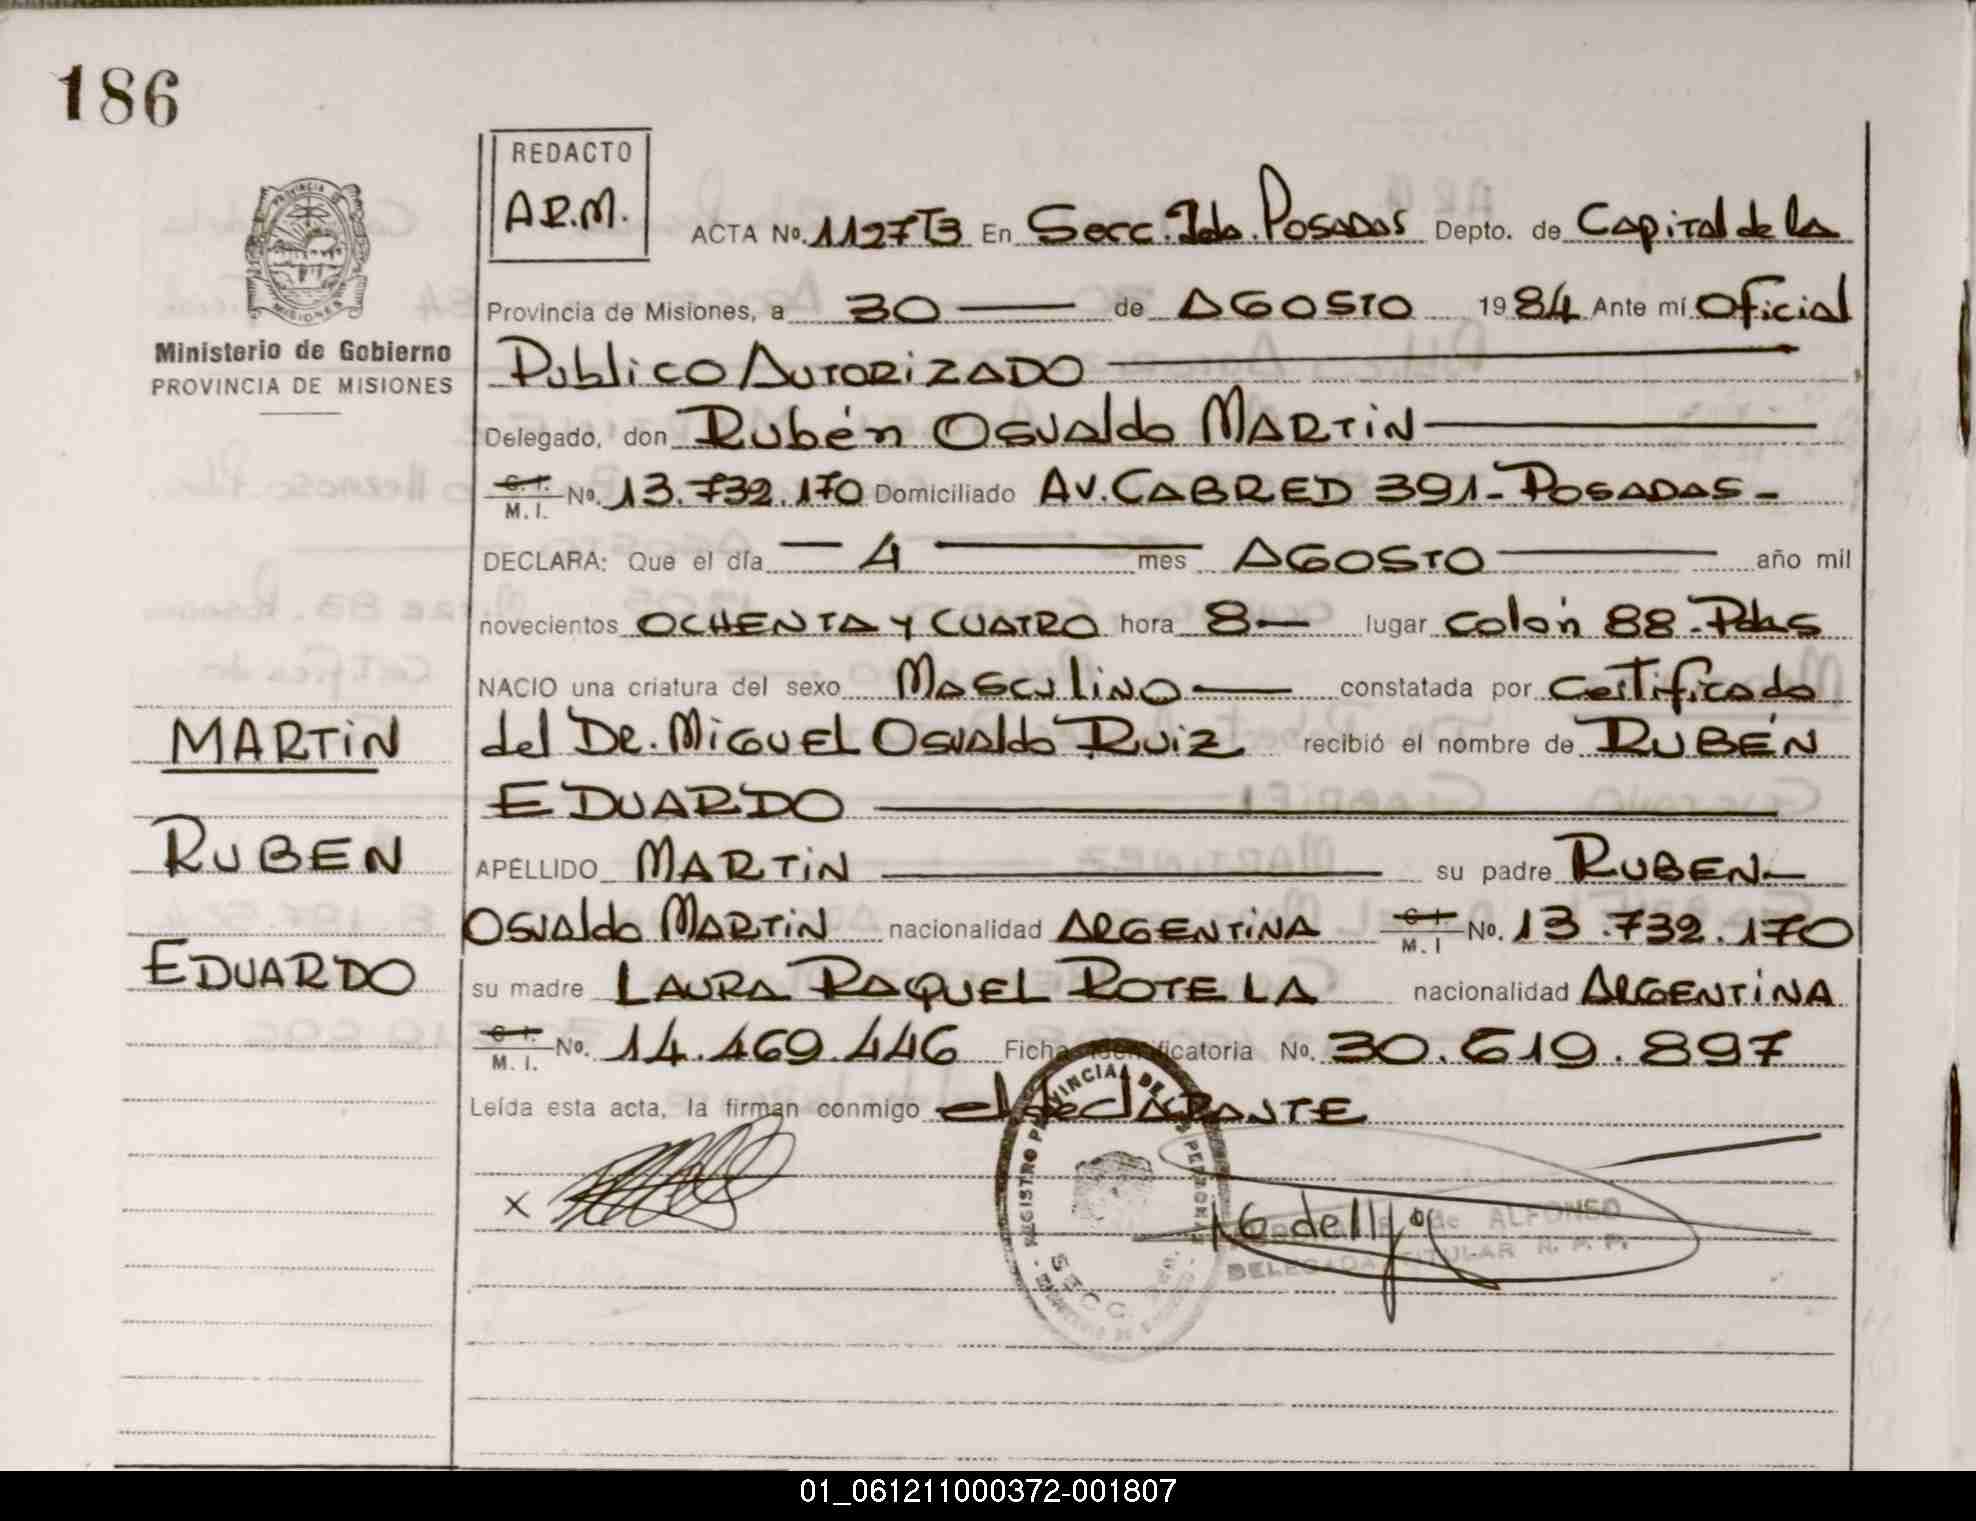 186
REDACTO
A.R.M.
ACTA No. 1127T3 En Secc. 2da. Posadas Depto. de Capital de la
Ministerio de Gobierno
PROVINCIA DE MISIONES
Provincia de Misiones, a 30 de AGOSTO 1984 Ante mí Oficial
Publico AUTORIZADO
Delegado, don Rubén Osvaldo MARTIN
C. I. M. I. No. 13.732.170 Domiciliado AV. CABRED 391- POSADAS-
DECLARA: Que el día 4 mes AGOSTO año mil
novecientos OCHENTA Y CUATRO hora 8 lugar Colón 88-Pdas
NACIO una criatura del sexo Masculino constatada por Certificado
del Dr. Miguel Osvaldo Ruiz recibió el nombre de RUBÉN
EDUARDO
APELLIDO MARTIN su padre RUBEN
Osvaldo MARTIN nacionalidad ARGENTINA C. I. M. I No. 13.732.170
su madre LAURA RAQUEL ROTELA nacionalidad ARGENTINA
C. I. M. I. No. 14.469.446 Ficha identificatoria No. 30.619.897
Leída esta acta, la firman conmigo el declarante
MARTIN
RUBEN
EDUARDO
x
REGISTRO PROVINCIAL DE LAS PERSONAS
SECC.
de ALFONSO
DELEGADA TITULAR R. P. P.
01_061211000372-001807